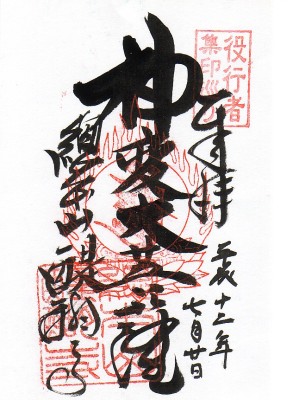 役行者
集印巡り
奉拝
平成十二年
七月廿日
神変大菩薩
総本山醍醐寺